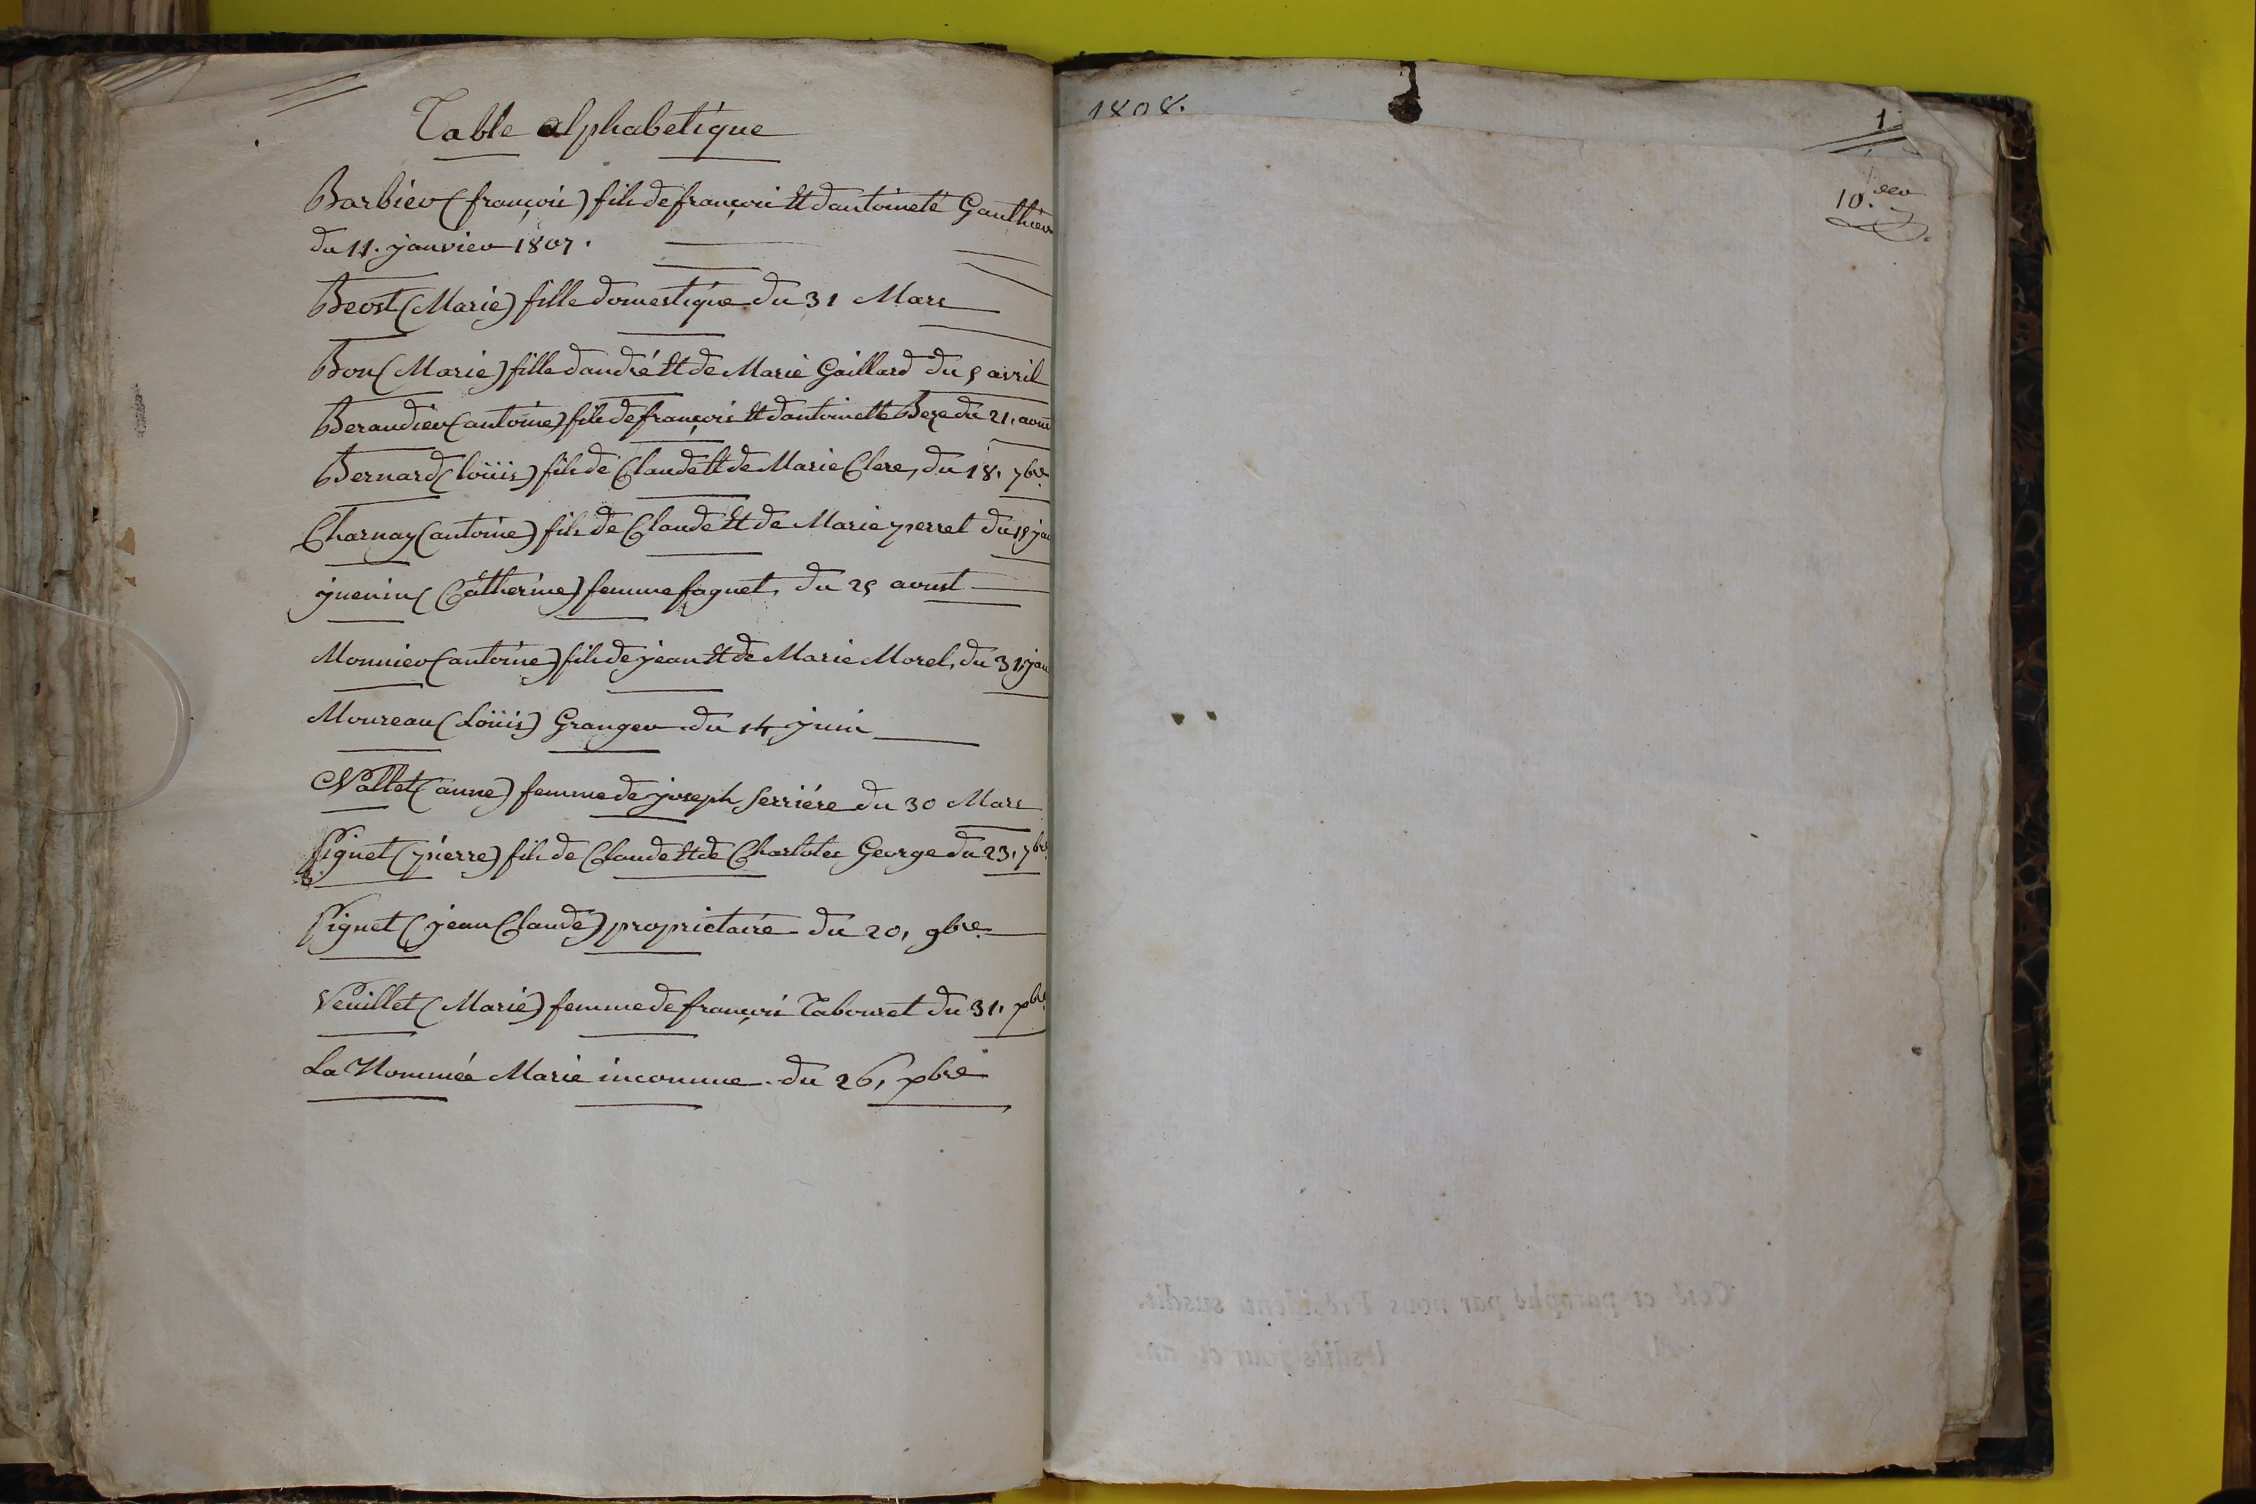 Table alphabetique
Barbier (françois) fils de françois Et dantoineté Gauthier
du 11. janvier 1807.
Beost (Marie) fille domestique du 31 Mars
Bon (Marie) fille dandré Et de Marie Gaillard du 5 avril
Beraudier (antoine) fils de françois Et dantoinette Beze du 21, aoust
Bernard (loüis) fils de Claude Et de Marie Clere, du 18, 7bre
Charnay (antoine) fils de Claude Et de Marie perret du 19 jan
juenin (Catherine) femme faguet, du 25 aoust
Monnier (antoine) fils de jean Et de Marie Morel, du 31, jan
Moureau (Loüis) Granger du 14 juin
Nallet (anne) femme de joseph ferriére du 30 Mars
Piguet (pierre) fils de Claude Et de Charlotes George du 23, 7bre
Piguet (jean Claude) proprietaire du 20, 9bre
Veuillet (Marie) femme de françois Tabouret du 31, xbre
La Nommée Marie inconnue du 26, xbre
1808.
1
10.